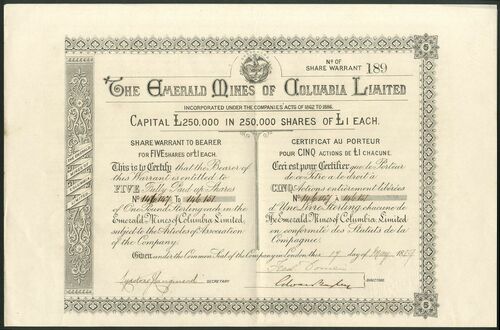 Nº OF
SHARE WARRANT 189
5
THE EMERALD MINES OF COLUMBIA LIMITED
INCORPORATED UNDER THE COMPANIES' ACTS OF 1862 TO 1886.
CAPITAL £250,000 IN 250,000 SHARES OF £1 EACH.
SHARE WARRANT TO BEARER
FOR FIVE SHARES OF £1 EACH.
This is to Certify that the Bearer of
this Warrant is entitled to
FIVE Fully Paid up Shares
Nº 146,147 TO 146,151
of One Pound Sterling each in the
Emerald Mines of Columbia Limited,
subject to the Articles of Association
of the Company.
CERTIFICAT AU PORTEUR
POUR CINQ ACTIONS DE £1 CHACUNE.
Ceci est pour Certifier que le Porteur
de ce titre a le droit à
CINQ Actions entièrement libérées
Nº 146,147 TO 146,151
d'Une Livre Sterling, chacune de
The Emerald Mines of Columbia Limited,
en conformité des Statuts de la
Compagnie.
Given under the Common Seal of the Company in London this 17 day of May 1889
SECRETARY
DIRECTORS
5